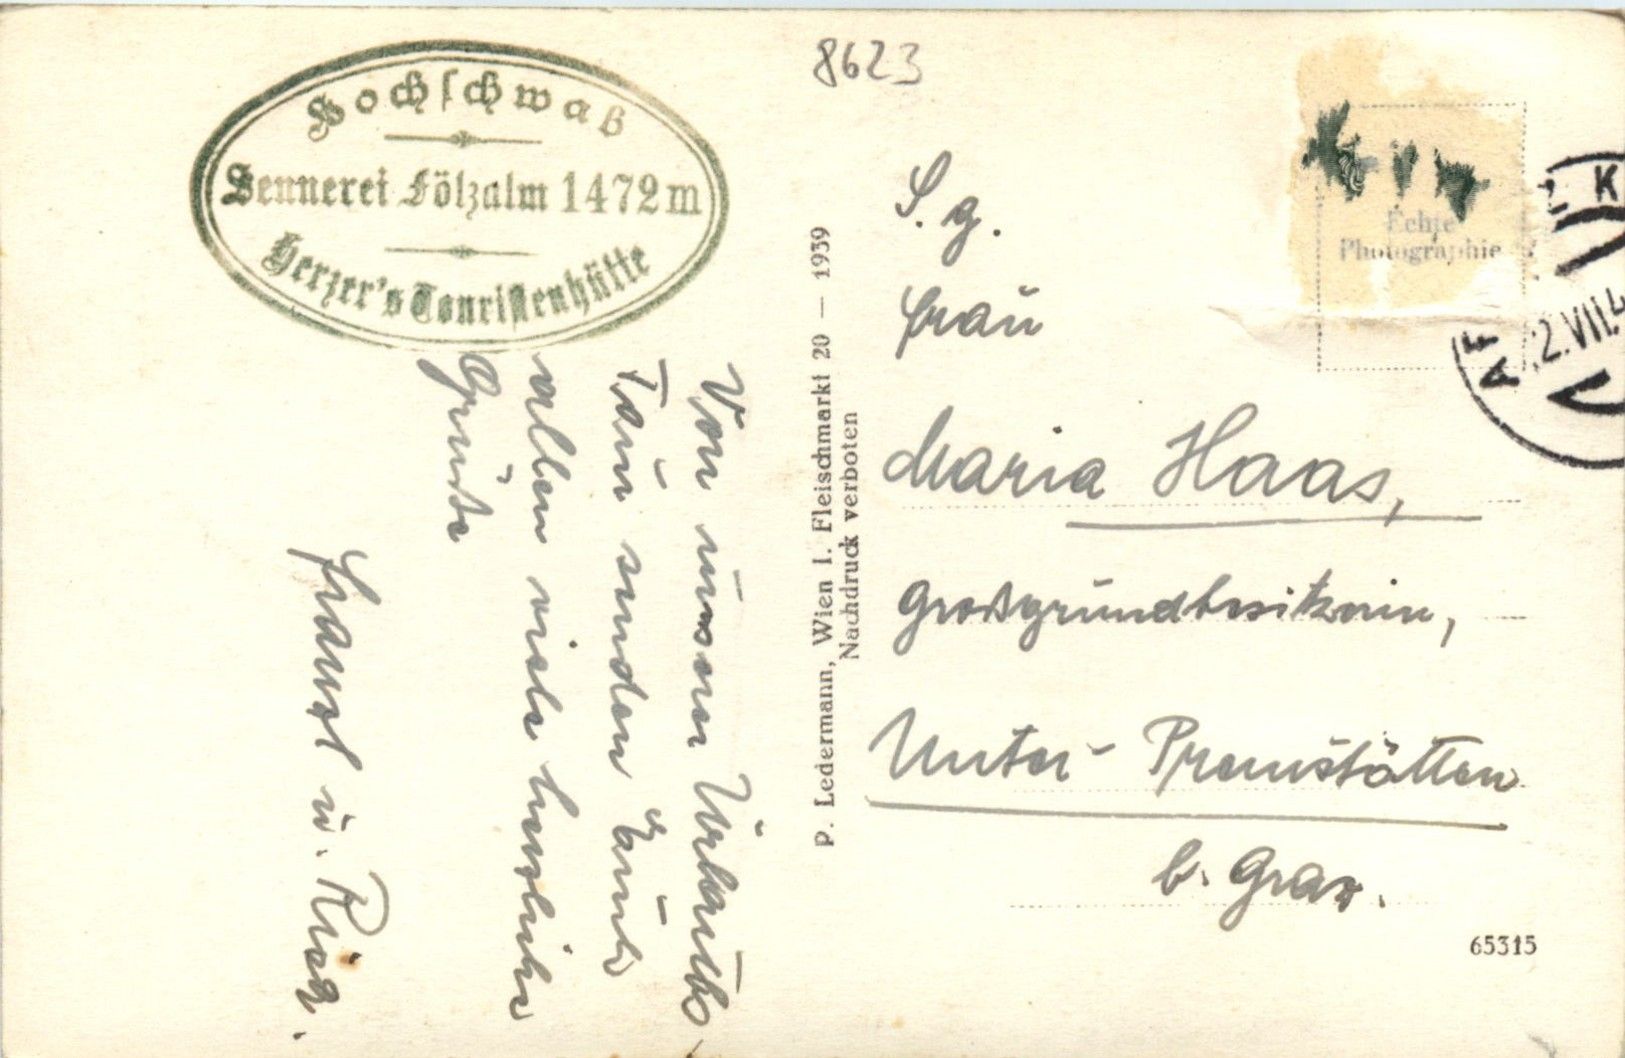 8623
Hochschwab
Sennerei Fölzalm 1472 m
Herzer's Touristenhütte
Von unserer Urlaubs
senden Euch
allen viele herzliche
Grüße
u.
P. Ledermann, Wien I. Fleischmarkt 20 — 1939
Nachdruck verboten
Echte
Photographie
AF
2.VII.4
K
S. g.
Frau
Maria Haas,
Großgrundbesitzerin,
Unter-Premstätten
b. Graz.
65315